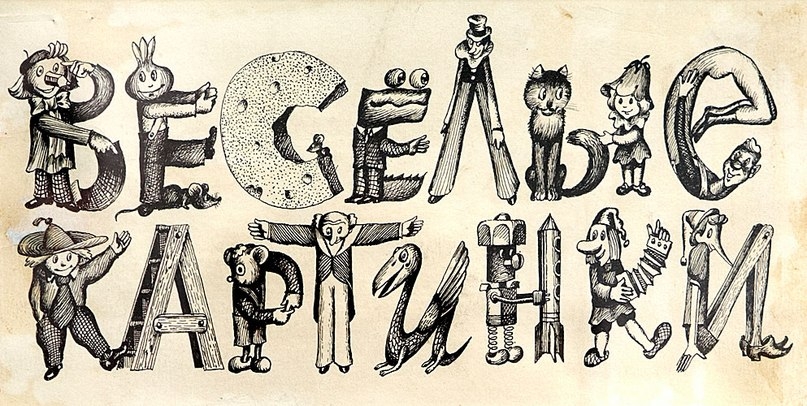 ВЕСЁЛЫЕ
КАРТИНКИ